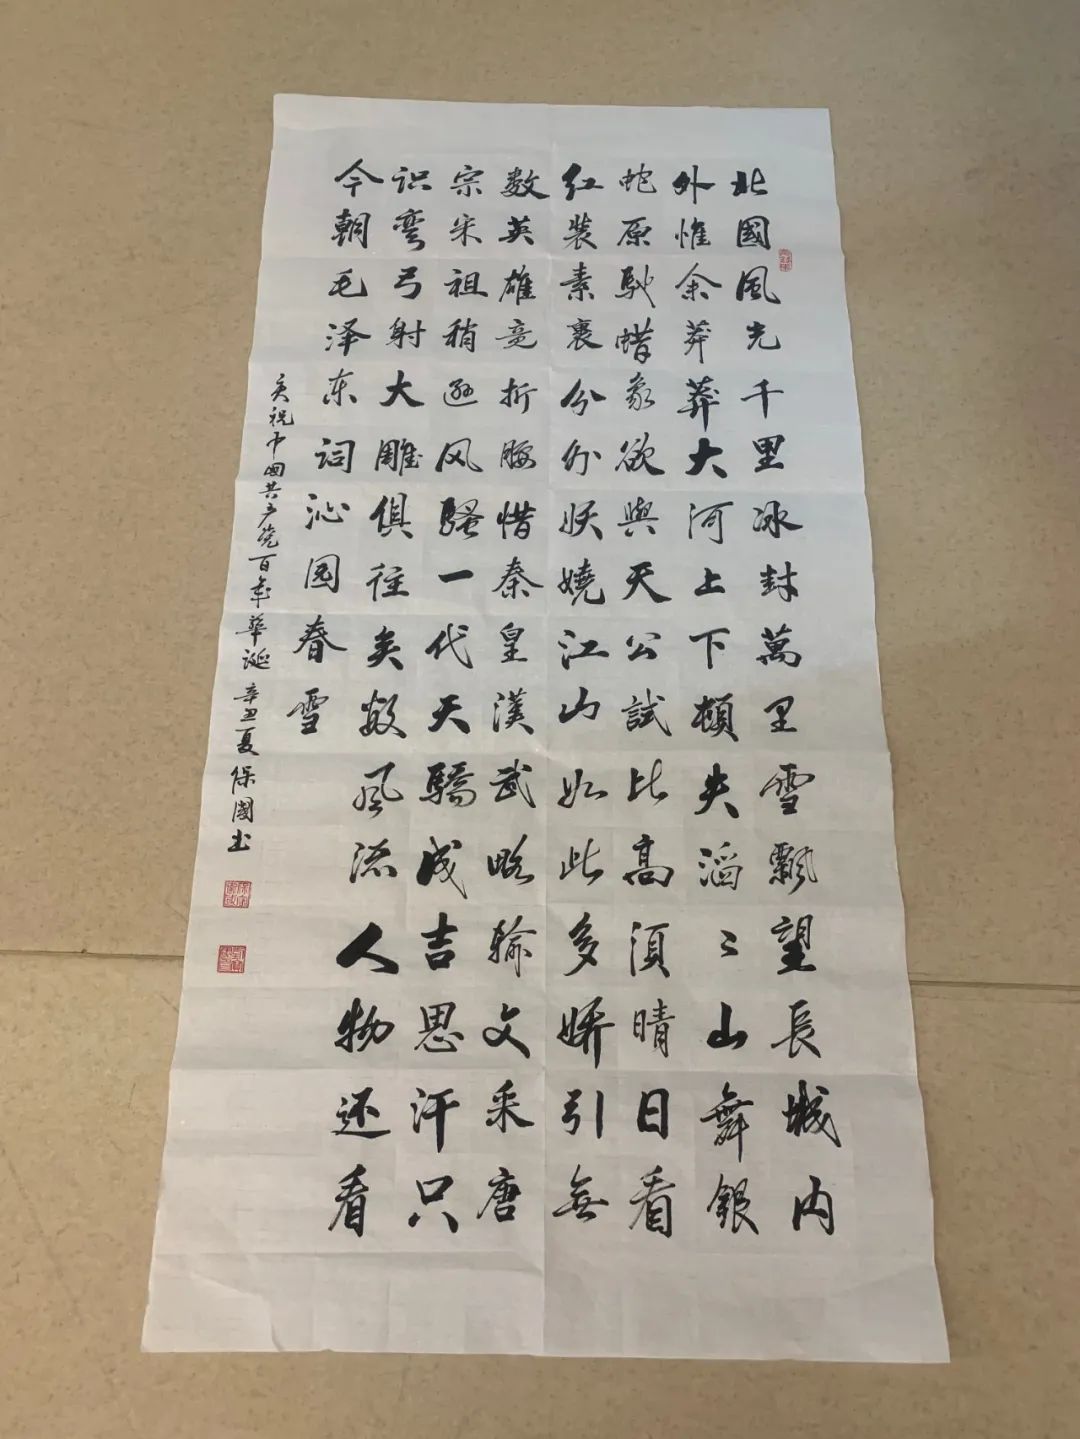 北國風光千里冰封萬里雪飄望長城内
外惟余莽莽大河上下頓失滔〻山舞銀
蛇原馳蜡象欲與天公試比高須晴日看
红装素裹分外妖嬈江山如此多娇引無
数英雄竞折腰惜秦皇漢武略输文采唐
宗宋祖稍逊风騷一代天驕成吉思汗只
识弯弓射大雕俱往矣数風流人物还看
今朝毛泽东词沁园春雪
庆祝中国共产党百年華诞辛丑夏保國书